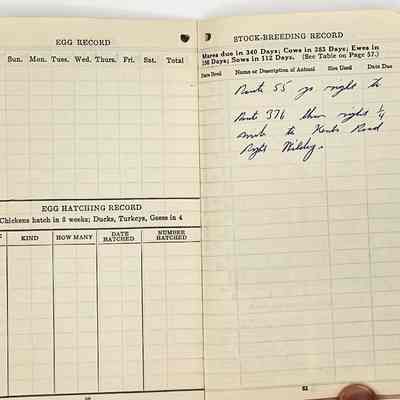 EGG RECORD
Sun. Mon. Tues. Wed. Thurs. Fri. Sat. Total
EGG HATCHING RECORD
Chickens hatch in 3 weeks; Ducks, Turkeys, Geese in 4
KIND HOW MANY DATE HATCHED NUMBER HATCHED
STOCK-BREEDING RECORD
Mares due in 340 Days; Cows in 283 Days; Ewes in
150 Days; Sows in 112 Days. (See Table on Page 57.)
Date Bred Name or Description of Animal Sire Used Date Due
Route 55 go right to
Rout 376 then right 1/4
mile to Road
Right